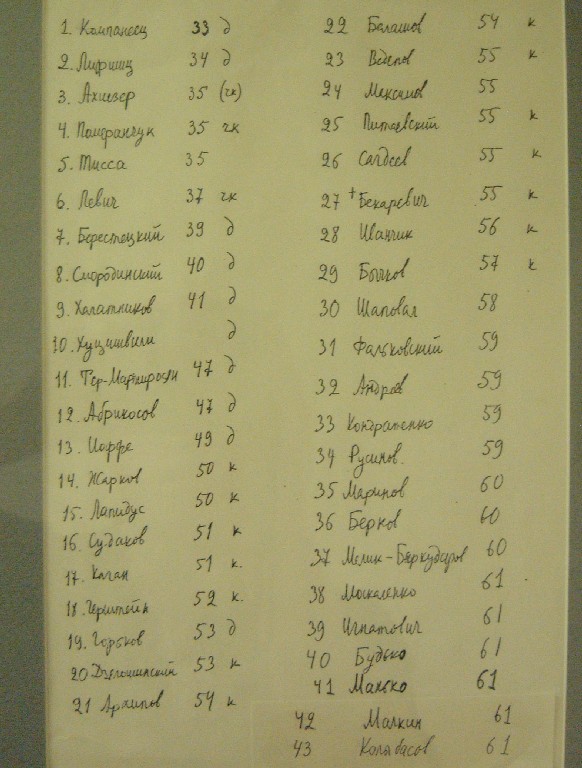 1. Компанеец 33 д
2. Лифшиц 34 д
3. Ахиезер 35 (чк)
4. Померанчук 35 чк
5. Тисса 35
6. Левич 37 чк
7. Берестецкий 39 д
8. Смородинский 40 д
9. Халатников 41 д
10. Хуцишвили д
11. Тер-Мартиросян 47 д
12. Абрикосов 47 д
13. Иоффе 49 д
14. Жарков 50 к
15. Лапидус 50 к
16. Судаков 51 к
17. Каган 51 к.
18. Герштейн 52 к.
19. Горьков 53 д
20 Дзялошинский 53 к
21 Архипов 54 к
22 Балашов 54 к
23 Веденов 55 к
24 Максимов 55
25 Питаевский 55 к
26 Сагдеев 55 к
27 † Бекаревич 55 к
28 Иванчик 56 к
29 Бычков 57 к
30 Шаповал 58
31 Фальковский 59
32 Андреев 59
33 Кондратенко 59
34 Русинов. 59
35 Маринов 60
36 Берков 60
37 Мелик-Бархударов 60
38 Москаленко 61
39 Игнатович 61
40 Будько 61
41 Манько 61
42 Малкин 61
43 Колыбасов 61